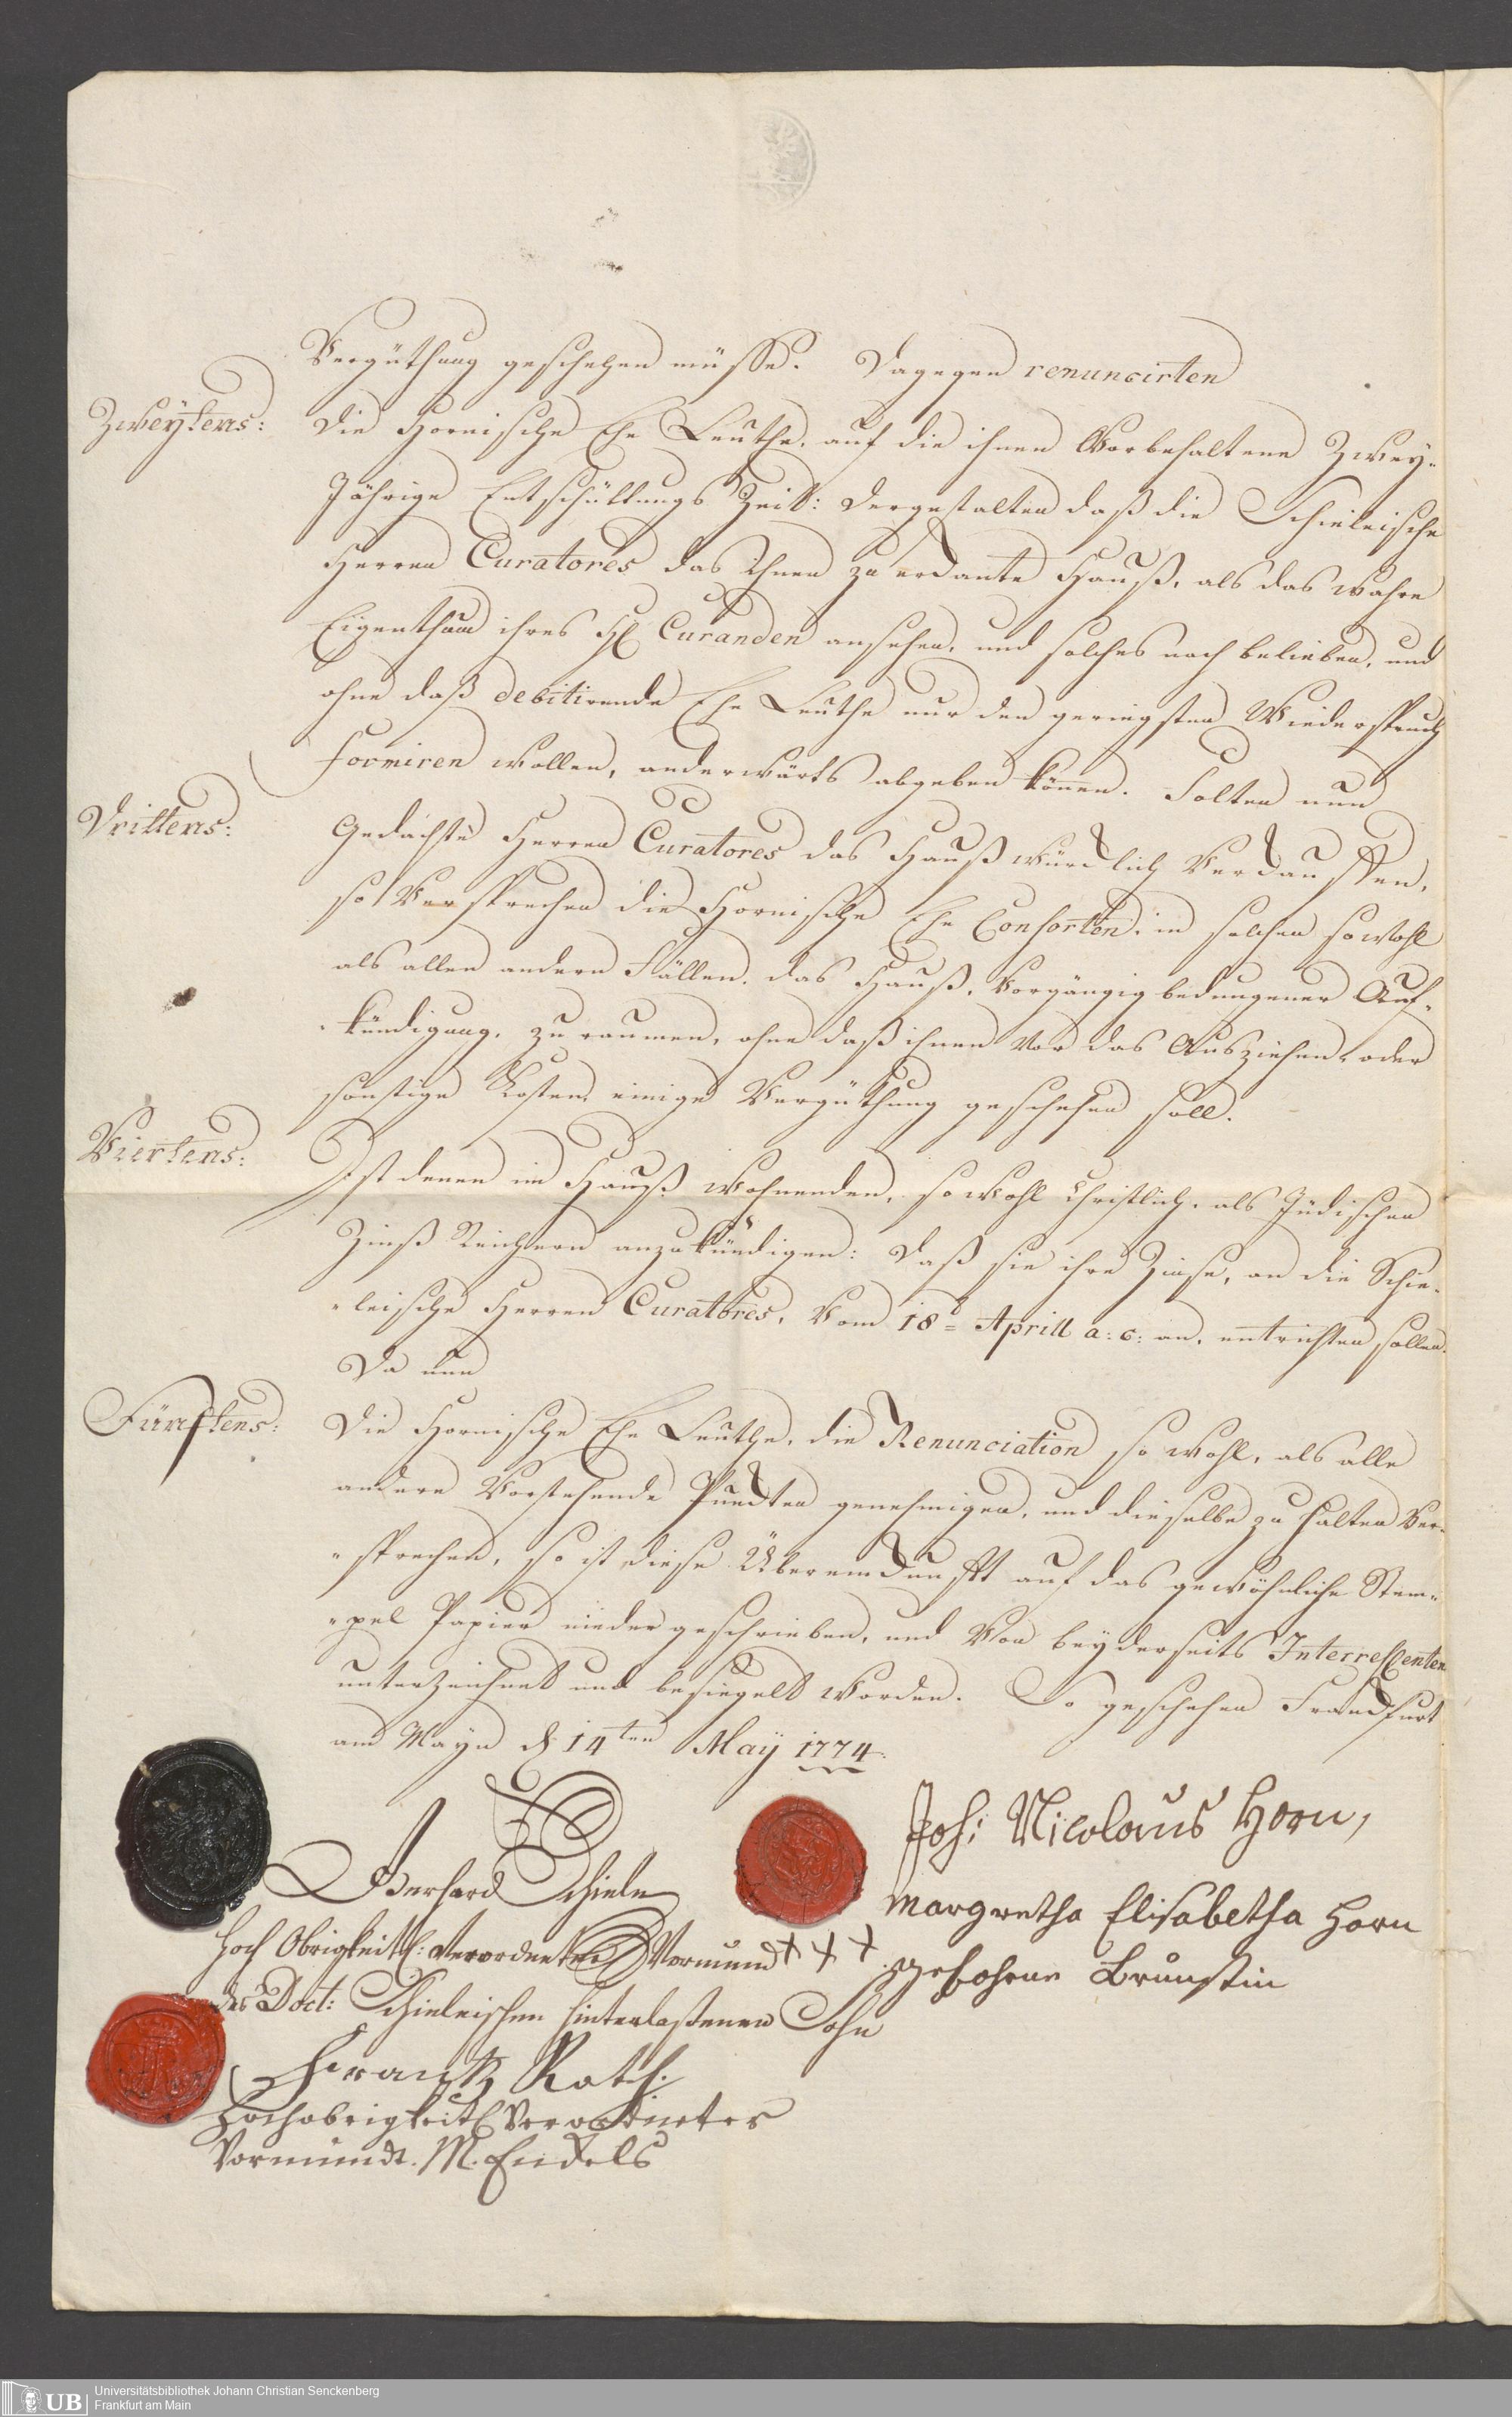 Vergüthung geschehen müsse. Dagegen renuncirten
Zweytens: die Hornische Ehe Leuthe, auf die ihnen Vorbehaltene Zwey-
Jährige Entschüttungs Zeit: dergestalten daß die Schieleische
Herren Curatores das ihnen zu erkante Hauß, als das wahre
Eigenthum ihres H. Curanden ansehen, und solches nach belieben, und
ohne daß debitirende Ehe Leuthe nur den geringsten Wiederspruch
formiren wollen, anderwärts abgeben können. Solten nun
Drittens: Gedachte Herren Curatores das Hauß würcklich Verkauffen,
so Versprechen die Hornische Ehe Consorten, in solchen sowohl
als allen andern Fällen, das Hauß, Vorgängig bedungener Auf-
kündigung, zu raumen, ohne daß ihnen vor das Ausziehen, oder
sonstige Kosten einige Vergüthung geschehen soll.
Viertens: Ist denen im Hauß wohnenden, sowohl Christlich- als Jüdischen
Zinß Reichern anzukündigen: daß sie ihre Zinse, an die Schie-
leische Herren Curatores, Vom 18t Aprill a: c: an, entrichten sollen.
Da nun
Fünftens: Die Hornische Ehe Leuthe, die Renunciation so wohl, als alle
andere Vorstehende Puncten genehmigen, und dieselbe zu halten Ver-
sprechen, so ist diese Übereinkunfft auf das gewöhnliche Stem-
pel Papier nieder geschrieben, und Von beyderseits Interressenten
unterzeichnet und besiegelt worden. So geschehen Franckfurt
am Mayn d 14ten May 1774.
Joh: Nicolaus Horn,
Eberhard Schiele
Margretha Elisabetha Horn
Hoch Obrigkeitl: Verordneter Vormund +++ gebohrne Brunstin
des Doct: Schieleischen hinterlaßenen Sohn
Frantz Rath.
Hochobrigkeitl Verordneter
Vormundt. M. Endels
UB
Universitätsbibliothek Johann Christian Senckenberg
Frankfurt am Main